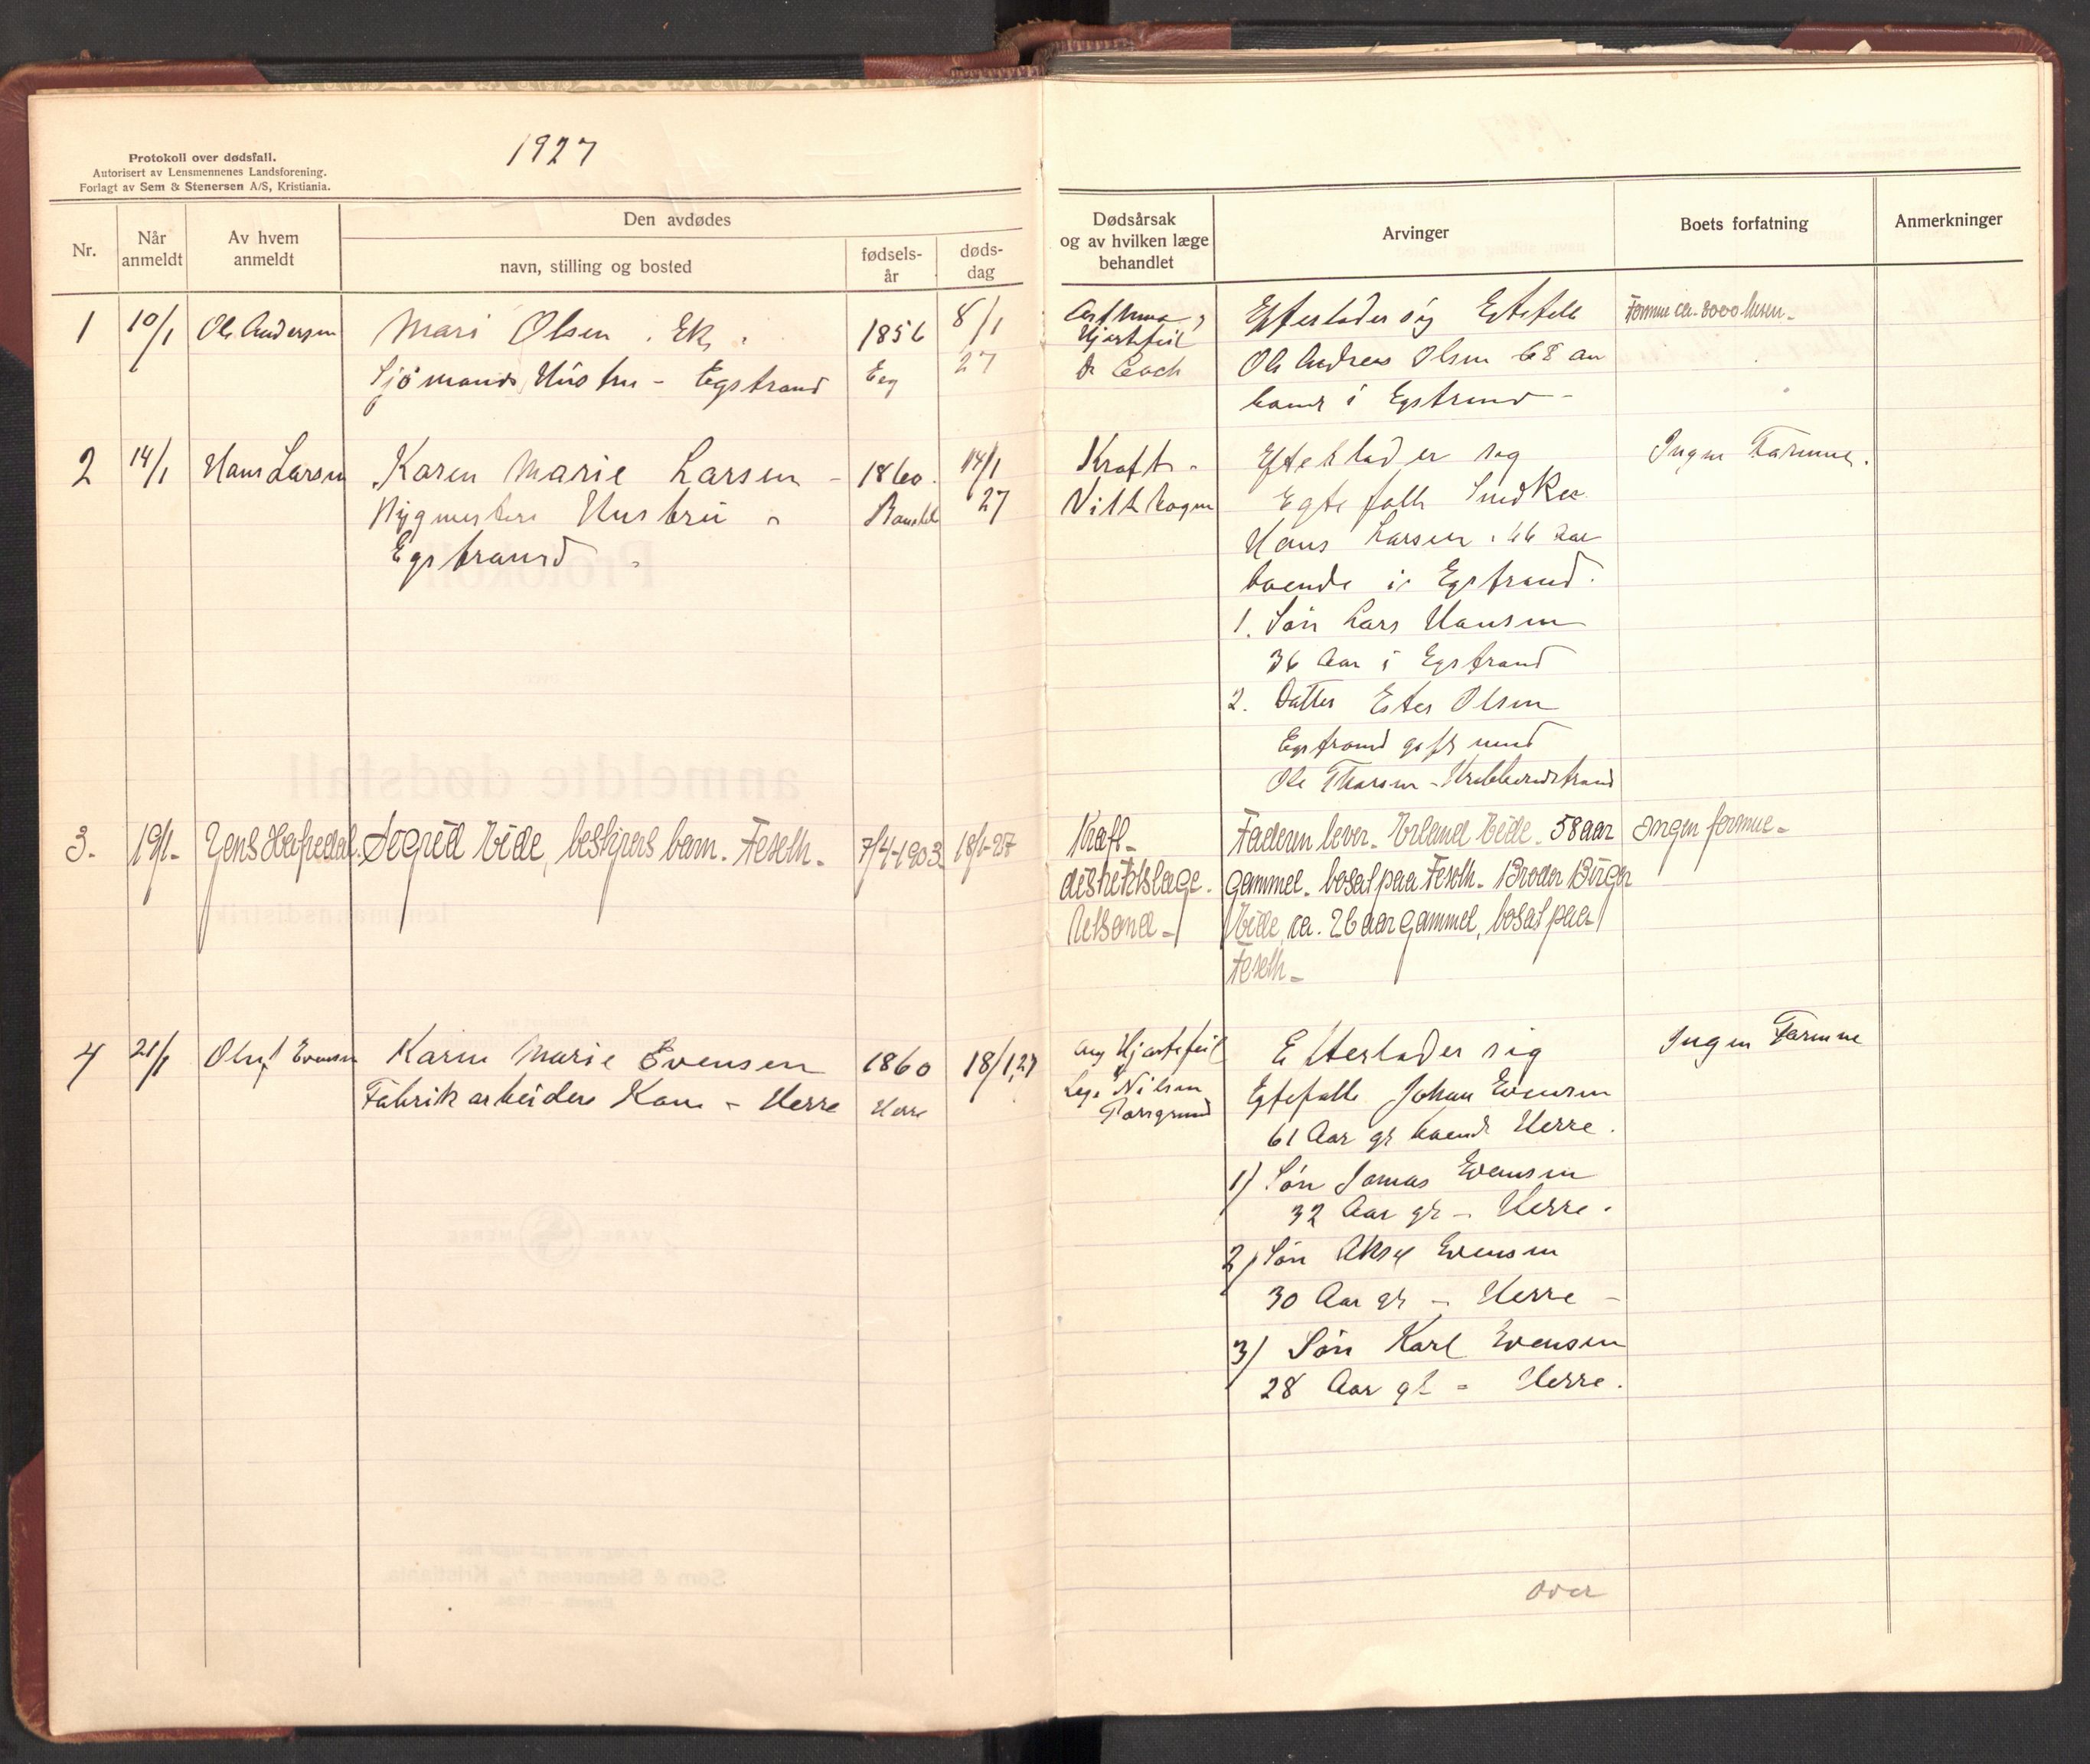 1927
Protokoll over dødsfall.
Autorisert av Lensmennenes Landsforening.
Forlagt av Sem & Stenersen A/S, Kristiania.
Nr.
Når anmeldt
Av hvem anmeldt
Den avdødes
navn, stilling og bosted
fødsels-
år
døds-
dag
Dødsårsak
og av hvilken læge
behandlet
Arvinger
Boets forfatning
Anmerkninger
1 10/1 Ole Andersen Mari Olsen . Ek . 1856 8/1
Sjömands Hustru - Egstrand Eeg 27
Hjertefeil
Dr Coch
Efterlader sig
Ole Andreas Olsen 68 aar
boende i Egstrand -
Formue ca. 8000 kroner -
2 14/1 Hans Larsen Karen Marie Larsen - 1860. 14/1
Hustru Bamble 27
Egstrand
Kræft -
Efterlader sig
Egtefælle
Hans Larsen . 66 Aar
boende i Egstrand.
1. Søn Lars Hansen
36 Aar i Egstrand
2. Datter Ester Olsen
Egstrand gift med
Ole Thorsen - Krabberødstrand
Ingen Formue.
3. 19/1- Jens Hafredal. Eide, bestyrers barn. Feseth. 7/4-1903. 18/1-27
Kræft -
distriktslæge.
Faderen lever. Erland Eide. 58 aar
gammel. bosat paa Feseth. Broder Birger
Eide, ca. 26 aar gammel, bosat paa
Feseth -
Ingen formue -
4 21/1 Oluf Evensen Karen Marie Evensen 1860 18/1,27
Fabrikarbeiders Kone - Herre Herre
Hjertefeil
Læge Nilsen
Porsgrund
Efterlader sig
Egtefælle Johan Evensen
61 Aar gl boende Herre .
1) Søn Jomas Evensen
32 Aar gl - Herre .
2) Søn Aksel Evensen
30 Aar gl - Herre -
3) Søn Karl Evensen
28 Aar gl - Herre .
Ingen Formue
over